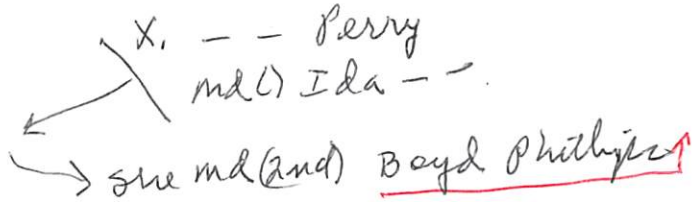 X. — — Perry
md() Ida — —.
she md(2nd) Boyd Phillips